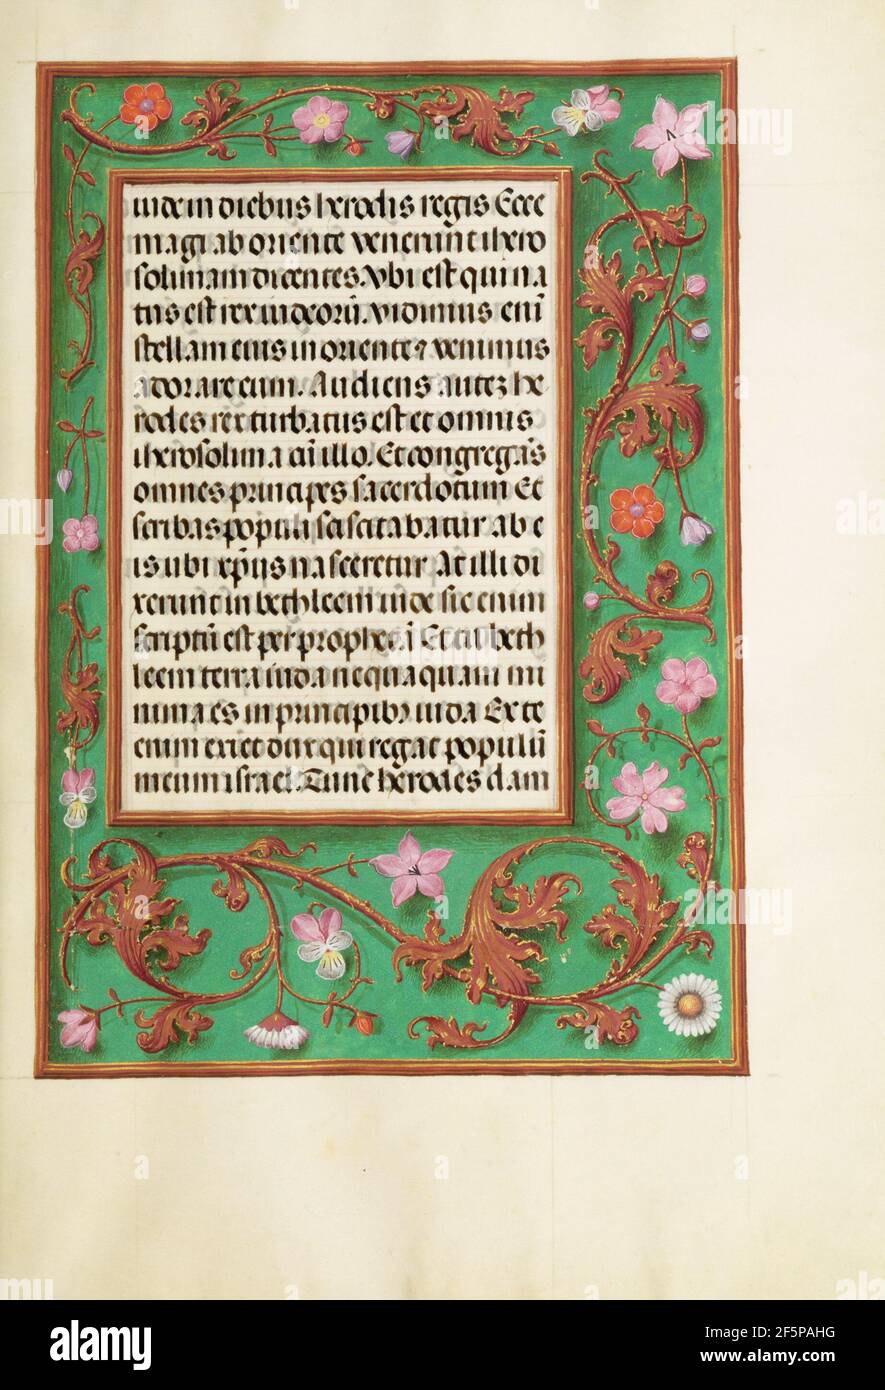 iude in diebus herodis regis Ecce
magi ab oriente venerunt ihero
solimam dicentes. Vbi est qui na
tus est rex iudeorū. vidimus eni̅
stellam eius in oriente ⁊ venimus
adorare eum. Audiens autez he
rodes rex turbatus est et omnis
iherosolima cū illo. Et congregās
omnes principes sacerdotum Et
scribas populi sciscitabatur ab e
is ubi xp̄us nasceretur At illi di
xerunt in bethleem iude sic enim
scriptū est per prophetā Et tu beth
leem terra iuda nequaquam mi
nima es in principibꝫ iuda Ex te
enim exiet dux qui regat populū
meum israel. Tunc herodes clam
alamy
Image ID: 2F5PAHG
www.alamy.com